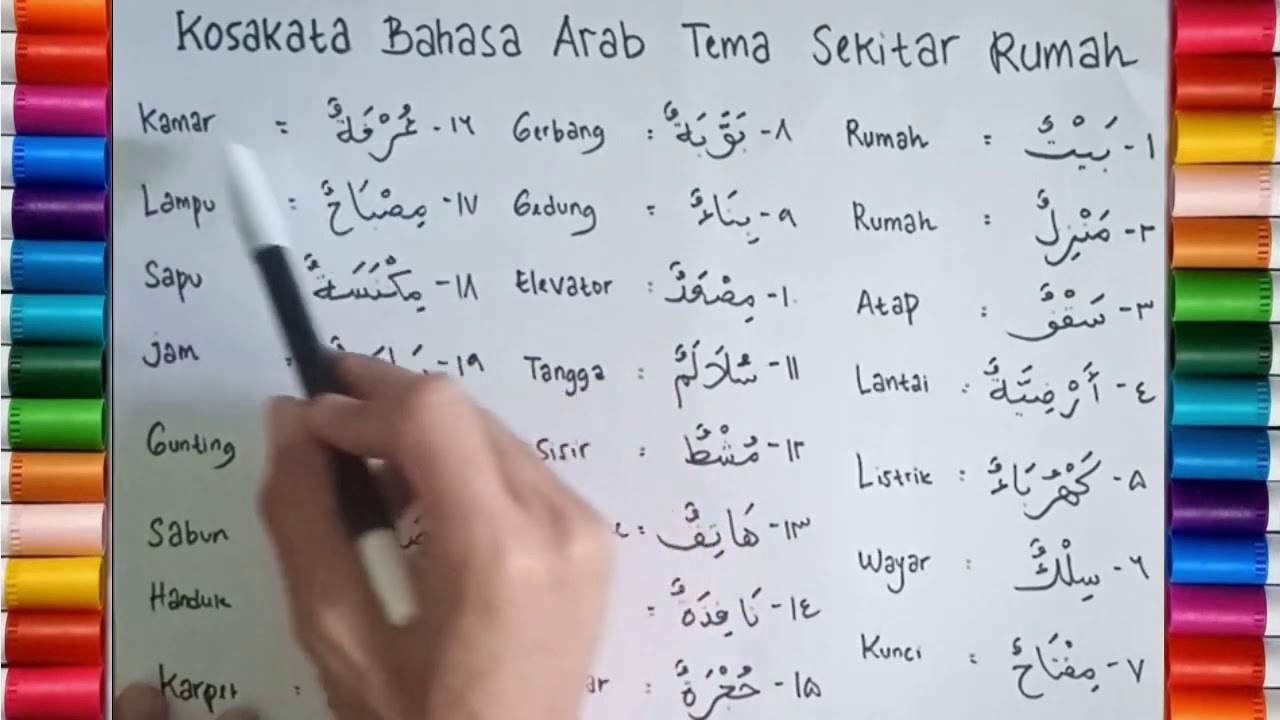 Kosakata Bahasa Arab Tema Sekitar Rumah
١- بَيْتٌ = Rumah
٢- مَنْزِلٌ = Rumah
٣- سَقْفٌ : Atap
٤- أَرْضِيَّةٌ : Lantai
٥- كَهْرُبَاءٌ : Listrik
٦- سِلْكٌ : Wayar
٧- مِفْتَاحٌ = Kunci
٨- بَوَّبَةٌ : Gerbang
٩- بِنَاءٌ = Gedung
١٠- مِصْعَدٌ : Elevator
١١- سُلَالَمٌ : Tangga
١٢- مُشْطٌ : Sisir
١٣- هَاتِفٌ :
١٤- نَافِذَةٌ =
١٥- حُجْرَةٌ : ar
١٦- غُرْفَةٌ = Kamar
١٧- مِصْبَاحٌ = Lampu
١٨- مِكْنَسَةٌ Sapu
١٩- Jam
Gunting
Sabun
Handuk
Karpet :